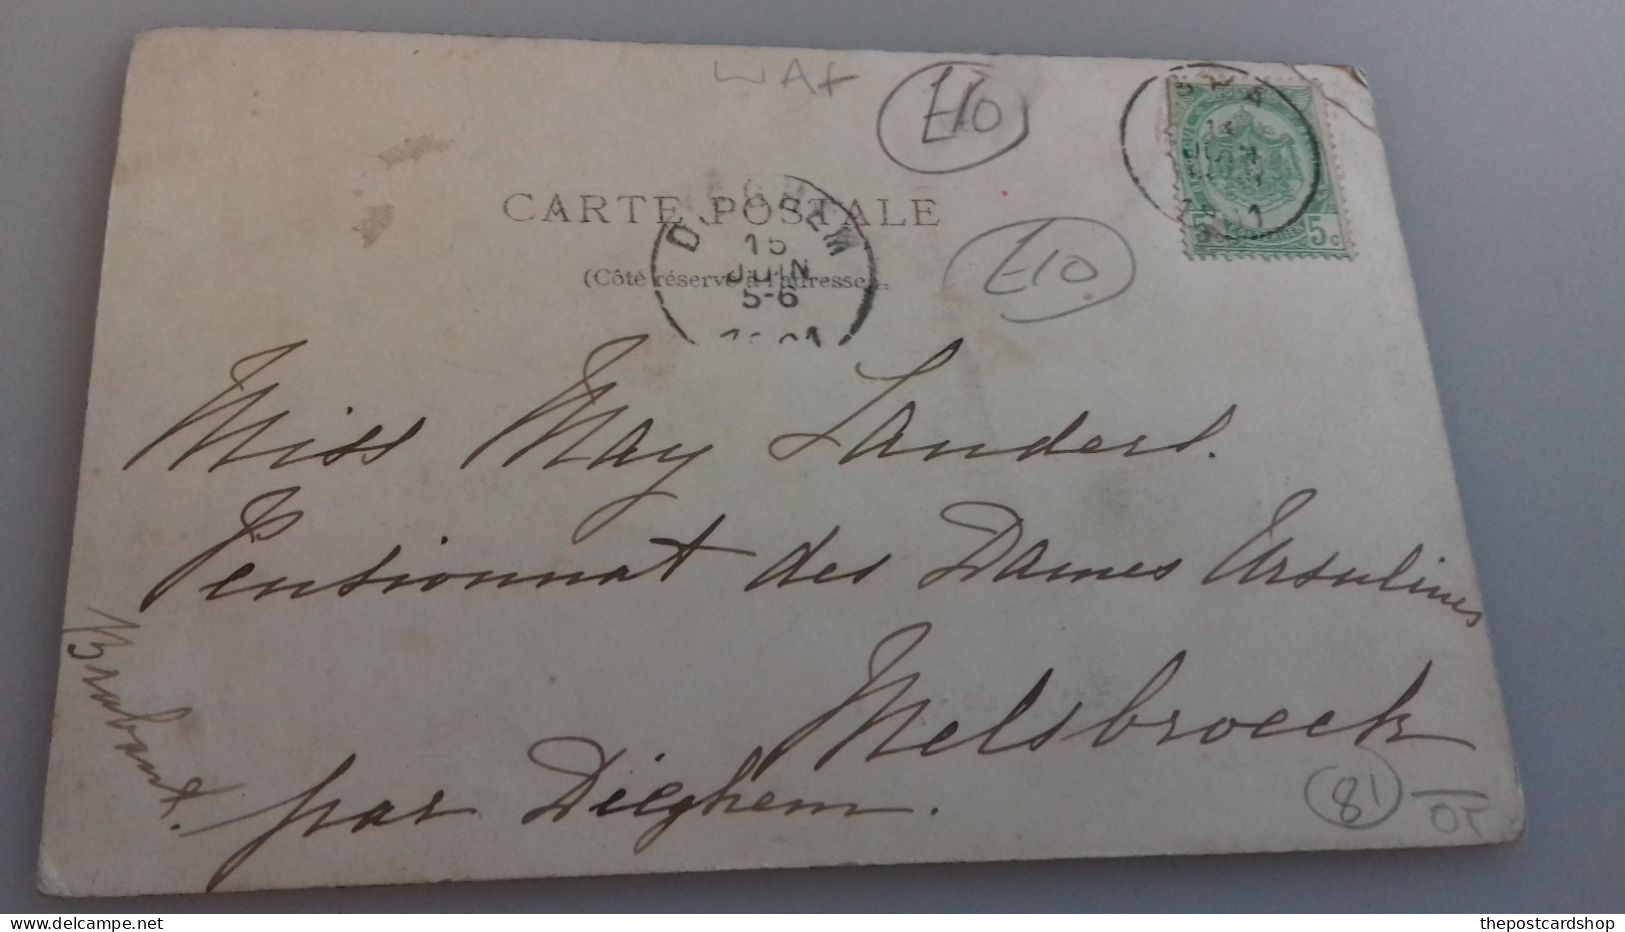 WAX
£10
SPA
5 5c
CARTE POSTALE
DIEGHEM
15
JUIN
5-6
1901
(Côté réservé à l'adresse)
£10
Miss May Landers.
Pensionnat des Dames Ursulines
Melsbroeck
par Dieghem.
Brabant.
81
thepostcardshop
delcampe.net